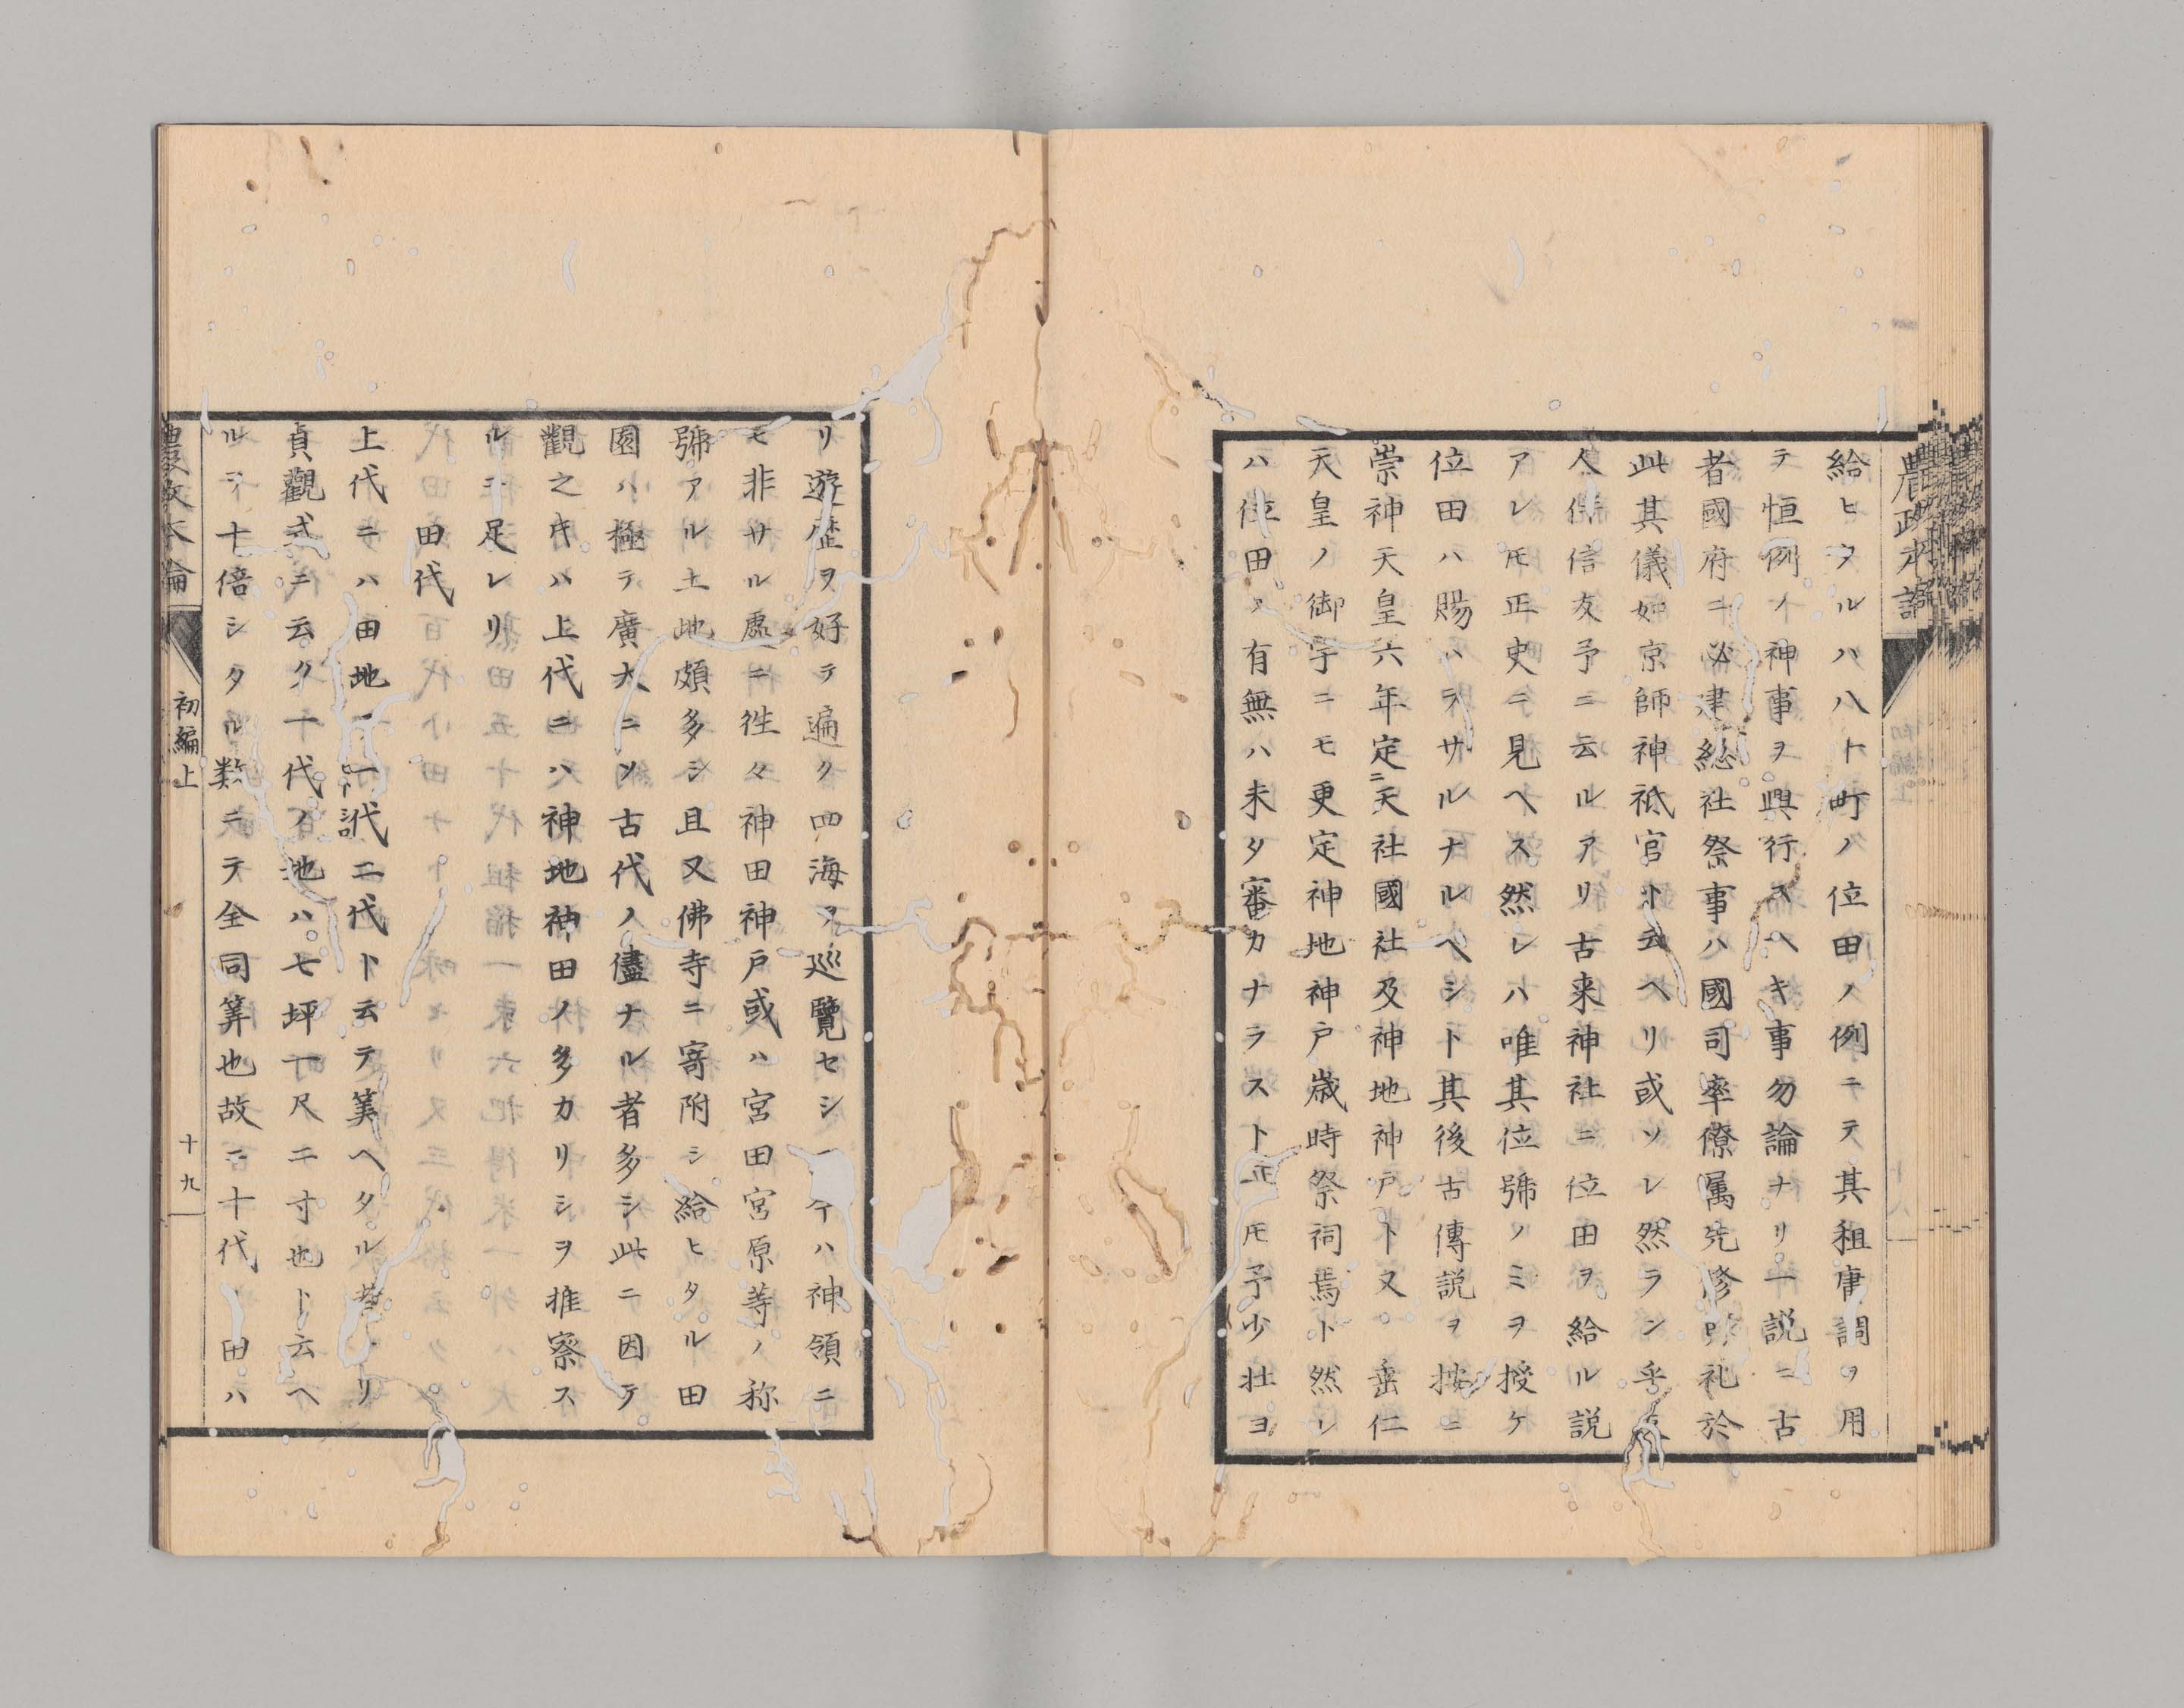 農政本論
給ヒタルハ八十町ノ位田ノ例ニテ其租庸調ヲ用
テ恒例ノ神事ヲ興行スヘキ事勿論ナリ一説ニ古
者國府ニ必建総社祭事ハ國司率僚属先修礼於
此其儀如京師神祇官ト云ヘリ或ソレ然ラン乎
人信友予ニ云ルアリ古来神社ニ位田ヲ給ル説
アレ𪜈正史ニ見ヘス然レハ唯其位號ノミヲ授ケ
位田ハ賜ハラサルナルヘシト其後古傳説ヲ按ニ
崇神天皇六年定ニ天社國社及神地神戸ト又垂仁
天皇ノ御宇ニモ更定神地神戸歳時祭祠焉ト然レ
ハ位田ノ有無ハ未タ審カナラスト𪜈予少壮ヨ
リ遊歴ヲ好テ遍ク四海ヲ巡覽セシニ今ハ神領ニ
モ非サル處ニ徃々神田神戸或ハ宮田宮原等ノ称
號アル土地頗多シ且又佛寺ニ寄附シ給ヒタル田
園ハ極テ廣大ニソ古代ノ儘ナル者多シ此ニ因テ
觀之𬼀ハ上代ニハ神地神田ノ多カリシヲ推察ス
ルニ足レリ
田代
上代ニハ田地ヲ一代二代ト云テ筭ヘタル者ナリ
貞觀式ニ云ク十代ノ地ハ七坪一尺二寸也ト云ヘ
ルヲ十倍シタル数ニテ全同筭也故ニ十代ノ田ハ
農政本論
初編上
十九